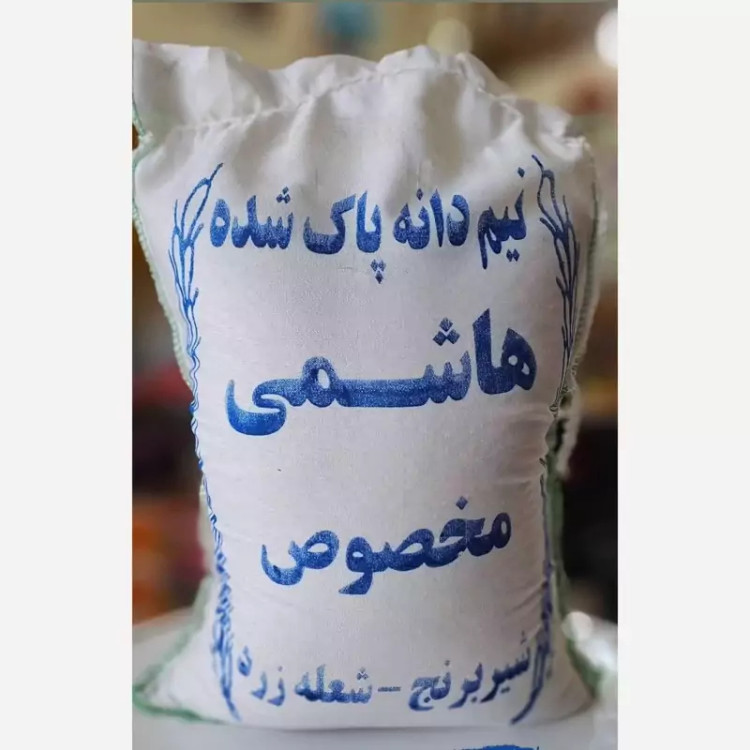 نیم دانه پاک شده
هاشمی
مخصوص
شیربرنج - شعله زرد